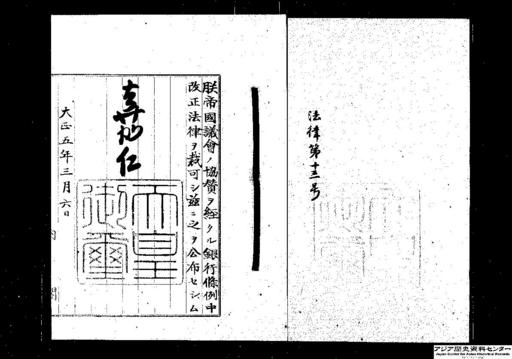 法律第十三号
朕帝國議會ノ協賛ヲ經タル銀行條例中
改正法律ヲ裁可シ茲ニ之ヲ公布セシム
嘉仁
天皇
御璽
大正五年三月六日
内閣
アジア歴史資料センター
Japan Center for Asian Historical Records